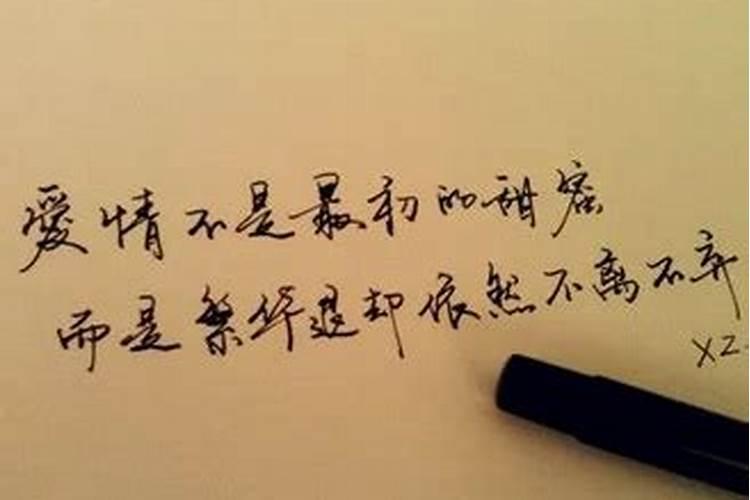 愛情不是最初的甜蜜
而是繁华退却依然不离不弃
XZ